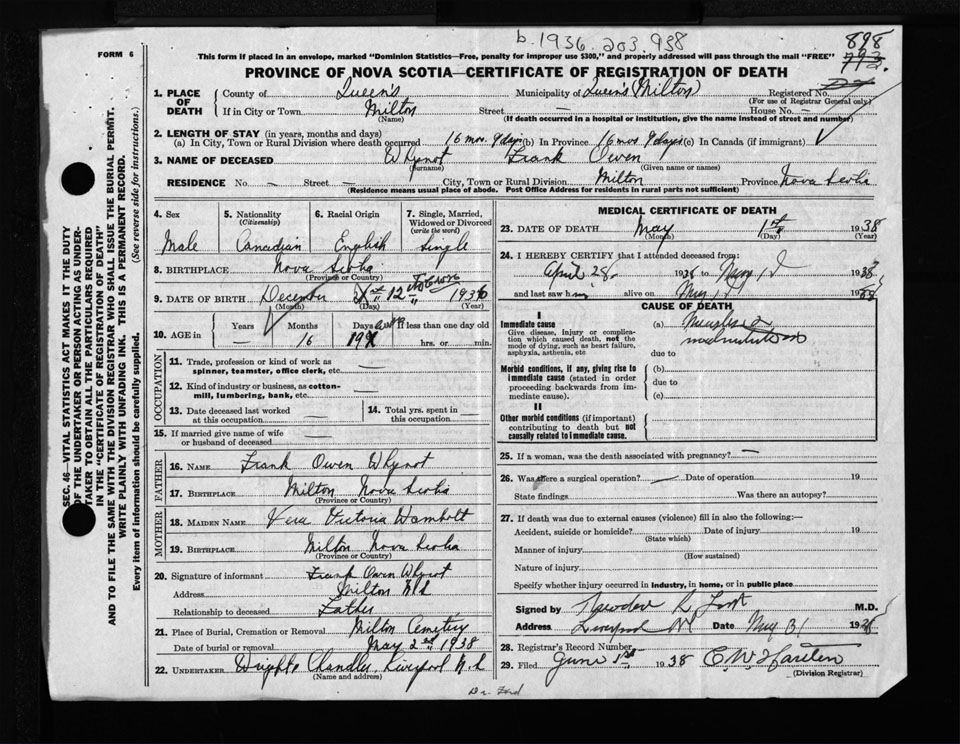 b. 1936 203 938
898
FORM 6
This form if placed in an envelope, marked "Dominion Statistics—Free, penalty for improper use $300," and properly addressed will pass through the mail "FREE"
PROVINCE OF NOVA SCOTIA—CERTIFICATE OF REGISTRATION OF DEATH
1. PLACE OF DEATH
County of Queens Municipality of Queens (Milton) Registered No.
(For use of Registrar General only)
If in City or Town Milton Street — House No. —
(Name) (If death occurred in a hospital or institution, give the name instead of street and number)
2. LENGTH OF STAY (in years, months and days)
(a) In City, Town or Rural Division where death occurred 16 mos. 9 days (b) In Province 16 mos 9 days (c) In Canada (if immigrant)
3. NAME OF DECEASED Whynot Frank Owen
(Surname) (Given name or names)
RESIDENCE No. — Street — City, Town or Rural Division Milton Province Nova Scotia
(Residence means usual place of abode. Post Office Address for residents in rural parts not sufficient)
4. Sex 5. Nationality (Citizenship) 6. Racial Origin 7. Single, Married, Widowed or Divorced (write the word)
Male Canadian English Single
8. BIRTHPLACE Nova Scotia
(Province or Country)
9. DATE OF BIRTH December 12 1936
(Month) (Day) (Year)
10. AGE in Years Months Days If less than one day old
16 19 hrs. or min.
OCCUPATION
11. Trade, profession or kind of work as spinner, teamster, office clerk, etc. —
12. Kind of industry or business, as cotton-mill, lumbering, bank, etc. —
13. Date deceased last worked at this occupation — 14. Total yrs. spent in this occupation —
15. If married give name of wife or husband of deceased —
FATHER
16. NAME Frank Owen Whynot
17. BIRTHPLACE Milton Nova Scotia
(Province or Country)
MOTHER
18. MAIDEN NAME Vera Victoria Wambolt
19. BIRTHPLACE Milton Nova Scotia
(Province or Country)
20. Signature of informant Frank Owen Whynot
Address Milton N.S
Relationship to deceased Father
21. Place of Burial, Cremation or Removal Milton Cemetery
Date of burial or removal May 2nd 1938
22. UNDERTAKER Chandler Liverpool N.S
(Name and address)
MEDICAL CERTIFICATE OF DEATH
23. DATE OF DEATH May 1st 1938
(Month) (Day) (Year)
24. I HEREBY CERTIFY that I attended deceased from:
April 28 19 to May 1 19
and last saw h alive on May 1 19
CAUSE OF DEATH
I
Immediate cause
Give disease, injury or complication which caused death, not the mode of dying, such as heart failure, asphyxia, asthenia, etc
(a) Measles
due to
Morbid conditions, if any, giving rise to immediate cause (stated in order proceeding backwards from immediate cause).
(b)
due to
(c)
II
Other morbid conditions (if important) contributing to death but not causally related to immediate cause.
25. If a woman, was the death associated with pregnancy? —
26. Was there a surgical operation? — Date of operation 19
State findings Was there an autopsy?
27. If death was due to external causes (violence) fill in also the following:—
Accident, suicide or homicide? Date of injury 19
(State which)
Manner of injury
(How sustained)
Nature of injury
Specify whether injury occurred in industry, in home, or in public place
Signed by M.D.
Address Liverpool NS Date May 31 19
28. Registrar's Record Number
29. Filed June 1st 1938
(Division Registrar)
Dr. Ford
SEC. 46—VITAL STATISTICS ACT MAKES IT THE DUTY
OF THE UNDERTAKER OR PERSON ACTING AS UNDER-
TAKER TO OBTAIN ALL THE PARTICULARS REQUIRED
IN THE "CERTIFICATE OF REGISTRATION OF DEATH"
AND TO FILE THE SAME WITH THE DIVISION REGISTRAR WHO SHALL ISSUE THE BURIAL PERMIT.
WRITE PLAINLY WITH UNFADING INK. THIS IS A PERMANENT RECORD.
Every item of information should be carefully supplied. (See reverse side for instructions.)